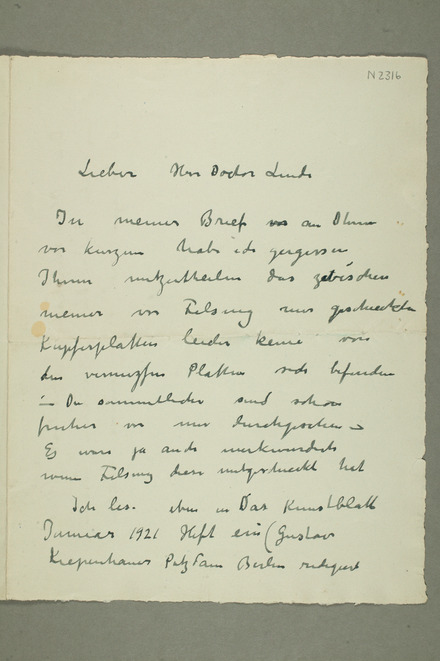 N 2316
Lieber Herr Doctor Linde
In meiner Brief an Ihnen
vor kurzem habe ich vergessen
Ihnen mitzutheilen das zwischen
meiner von Felsing mir geschickten
Kupferplatten leider keine von
den vernutzten Platten sich befinden
– Die sammtlichen sind schon
früher von mir durchgesehen –
Es war ja auch merkwürdich
wenn Felsing diese mitgeschickt hat
Ich les. eben in Das Kunstblatt
Januar 1921 Heft ein (Gustav
Kiepenhauer Potzdam Berlin redigert